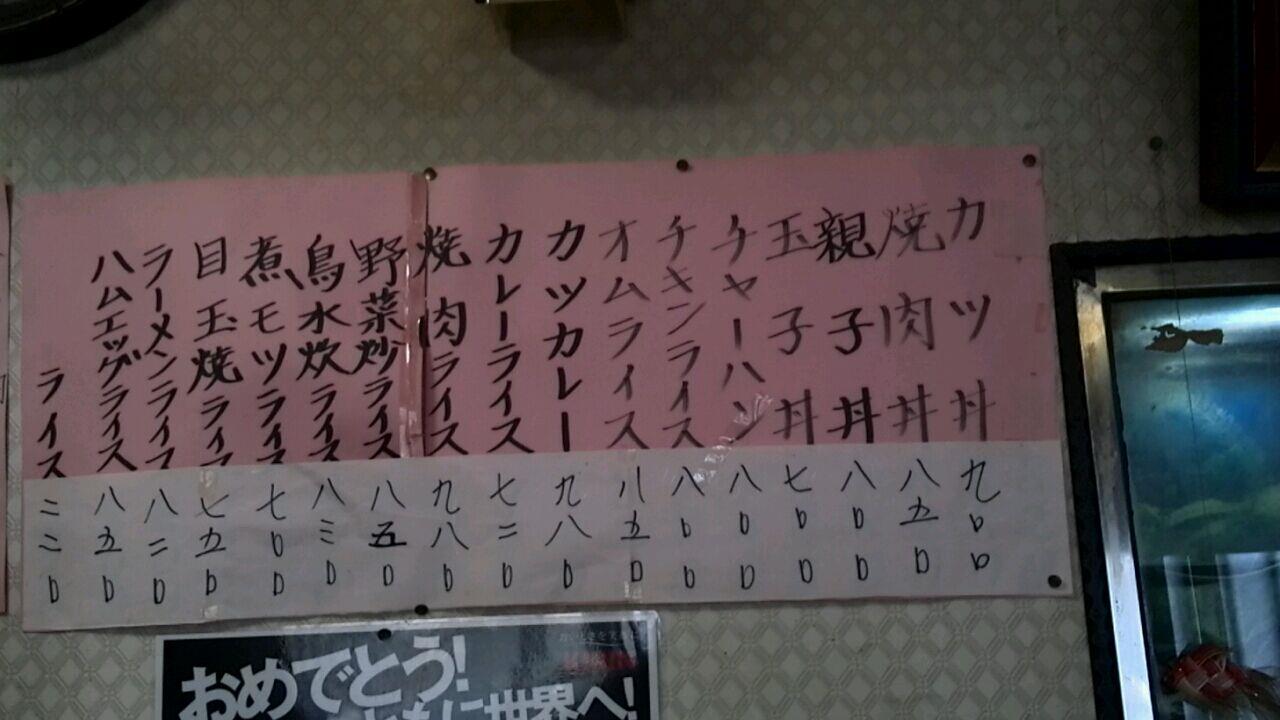 カツ丼 九〇〇
焼肉丼 八五〇
親子丼 八〇〇
玉子丼 七〇〇
チャーハン 八〇〇
チキンライス 八〇〇
オムライス 八五〇
カツカレー 九八〇
カレーライス 七二〇
焼肉ライス 九八〇
野菜炒ライス 八五〇
鳥水炊ライス 八三〇
煮モツライス 七〇〇
目玉焼ライス 七五〇
ラーメンライス 八二〇
ハムエッグライス 八五〇
ライス 二二〇
おめでとう!
世界へ!